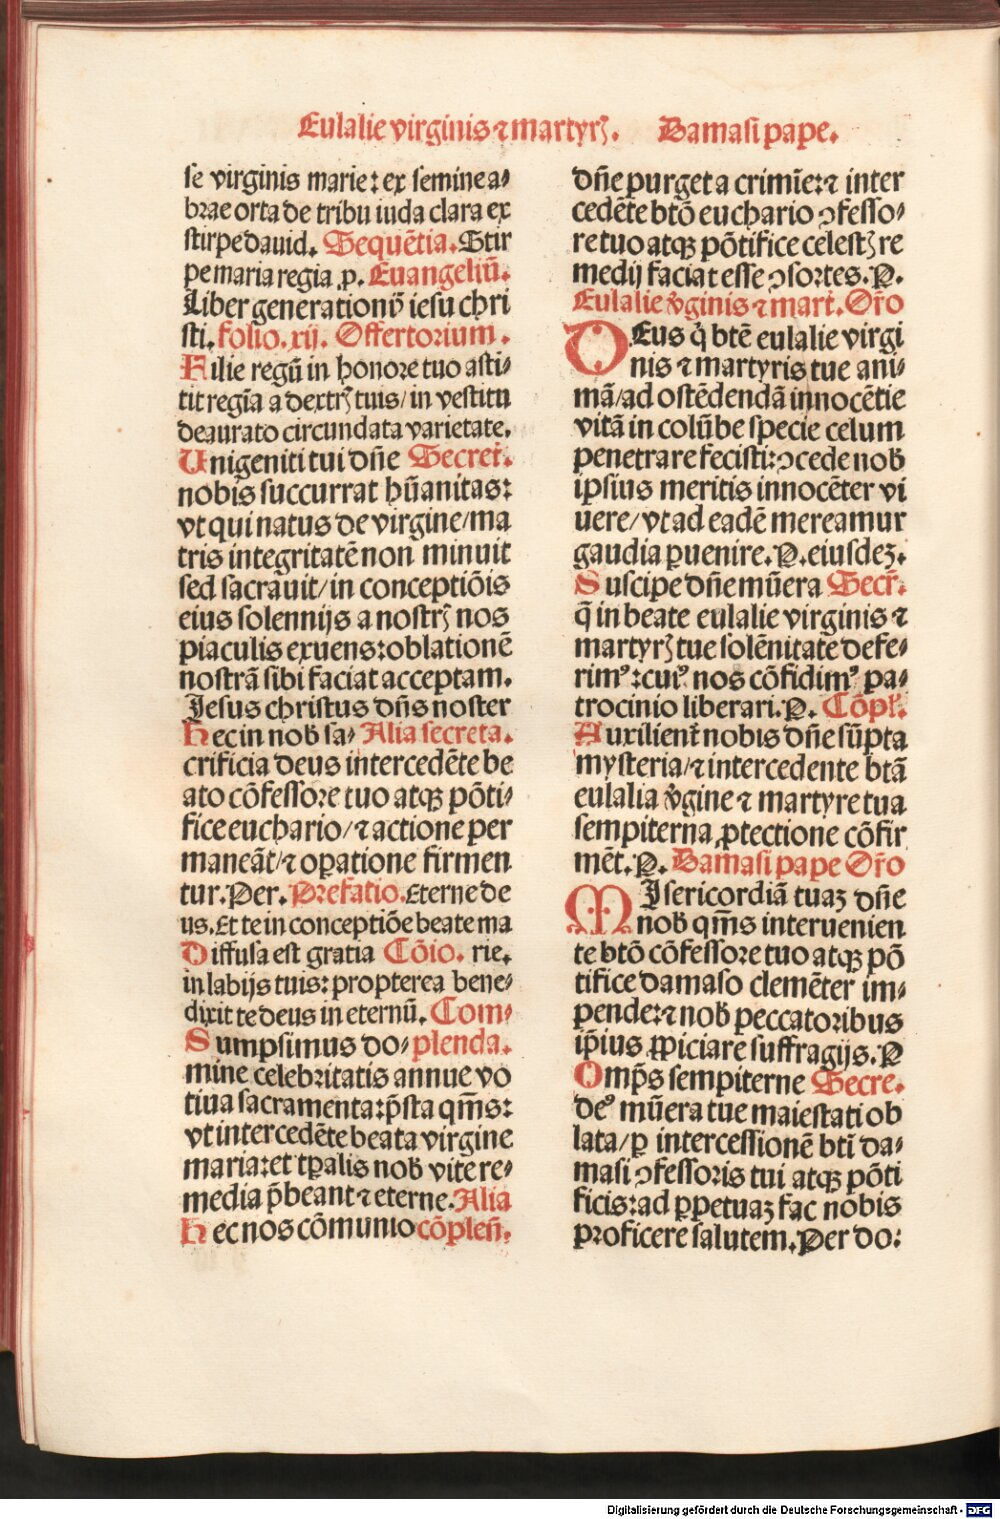 Eulalie virginis ⁊ martyrꝭ. Damasi pape.
se virginis marie: ex semine a⸗
brae orta de tribu iuda clara ex
stirpe dauid. Sequētia. Stir
pe maria regia ꝓ. Euangeliū.
Liber generationū iesu chri
sti. folio. xij. Offertorium.
Filie regū in honore tuo asti⸗
tit regīa a dextrꝭ tuis/ in vestitu
deaurato circundata varietate.
Unigeniti tui dn̄e Secret̉.
nobis succurrat hūanitas:
vt qui natus de virgine/ma
tris integritatē non minuit
sed sacrauit/ in conceptiōis
eius solennijs a nostrꝭ nos
piaculis exuens: oblationē
nostrā sibi faciat acceptam.
Jesus christus dn̄s noster
Hec in nob̄ sa⸗ Alia secreta.
crificia deus intercedēte be
ato cōfessore tuo atqꝫ pōti⸗
fice euchario/⁊ actione per
maneāt/⁊ oꝑatione firmen
tur. Per. Prefatio. Eterne de
us. Et te in conceptiōe beate ma
Diffusa est gratia Cōio. rie.
in labijs tuis: propterea bene⸗
dixit te deus in eternū. Com⸗
Sumpsimus do⸗ plenda.
mine celebritatis annue vo
tiua sacramenta: p̄sta qm̄s:
vt intercedēte beata virgine
maria: et tꝑalis nob̄ vite re⸗
media p̄beant ⁊ eterne. Alia
Hec nos cōmunio cōplen̄.
dn̄e purget a crimīe: ⁊ inter
cedēte btō euchario ꝯfesso⸗
re tuo atqꝫ pōtifice celestꝭ re
medij faciat esse ꝯsortes. P.
Eulalie v̊ginis ⁊ mart̉. Or̄o
DEus q̇ btē eulalie virgi
nis ⁊ martyris tue ani⸗
mā/ad ostēdendā innocētie
vitā in colūbe specie celum
penetrare fecisti: ꝯcede nob̄
ipsius meritis innocēter vi
uere/ vt ad eadē mereamur
gaudia ꝑuenire. P. eiusdeꝫ.
Suscipe dn̄e mūera Secr̄.
q̄ in beate eulalie virginis ⁊
martyrꝭ tue solēnitate defe⸗
rimꝰ: cuiꝰ nos cōfidimꝰ pa⸗
trocinio liberari. P. Cōpl̄.
Auxilient̉ nobis dn̄e sūpta
mysteria/⁊ intercedente btā
eulalia v̊gine ⁊ martyre tua
sempiterna ꝓtectione cōfir
mēt. P. Damasi pape Or̄o
MIsericordiā tuaꝫ dn̄e
nob̄ qm̄s interuenien
te btō cōfessore tuo atqꝫ pō
tifice damaso clemēter im⸗
pende: ⁊ nob̄ peccatoribus
ip̄ius ꝓpiciare suffragijs. P
Omp̄s sempiterne Secre.
deꝰ mūera tue maiestati ob
lata/ ꝑ intercessionē bt̄i da⸗
masi ꝯfessoris tui atqꝫ pōti
ficis: ad ꝑpetuaꝫ fac nobis
proficere salutem. Per do:
Digitalisierung gefördert durch die Deutsche Forschungsgemeinschaft - DFG